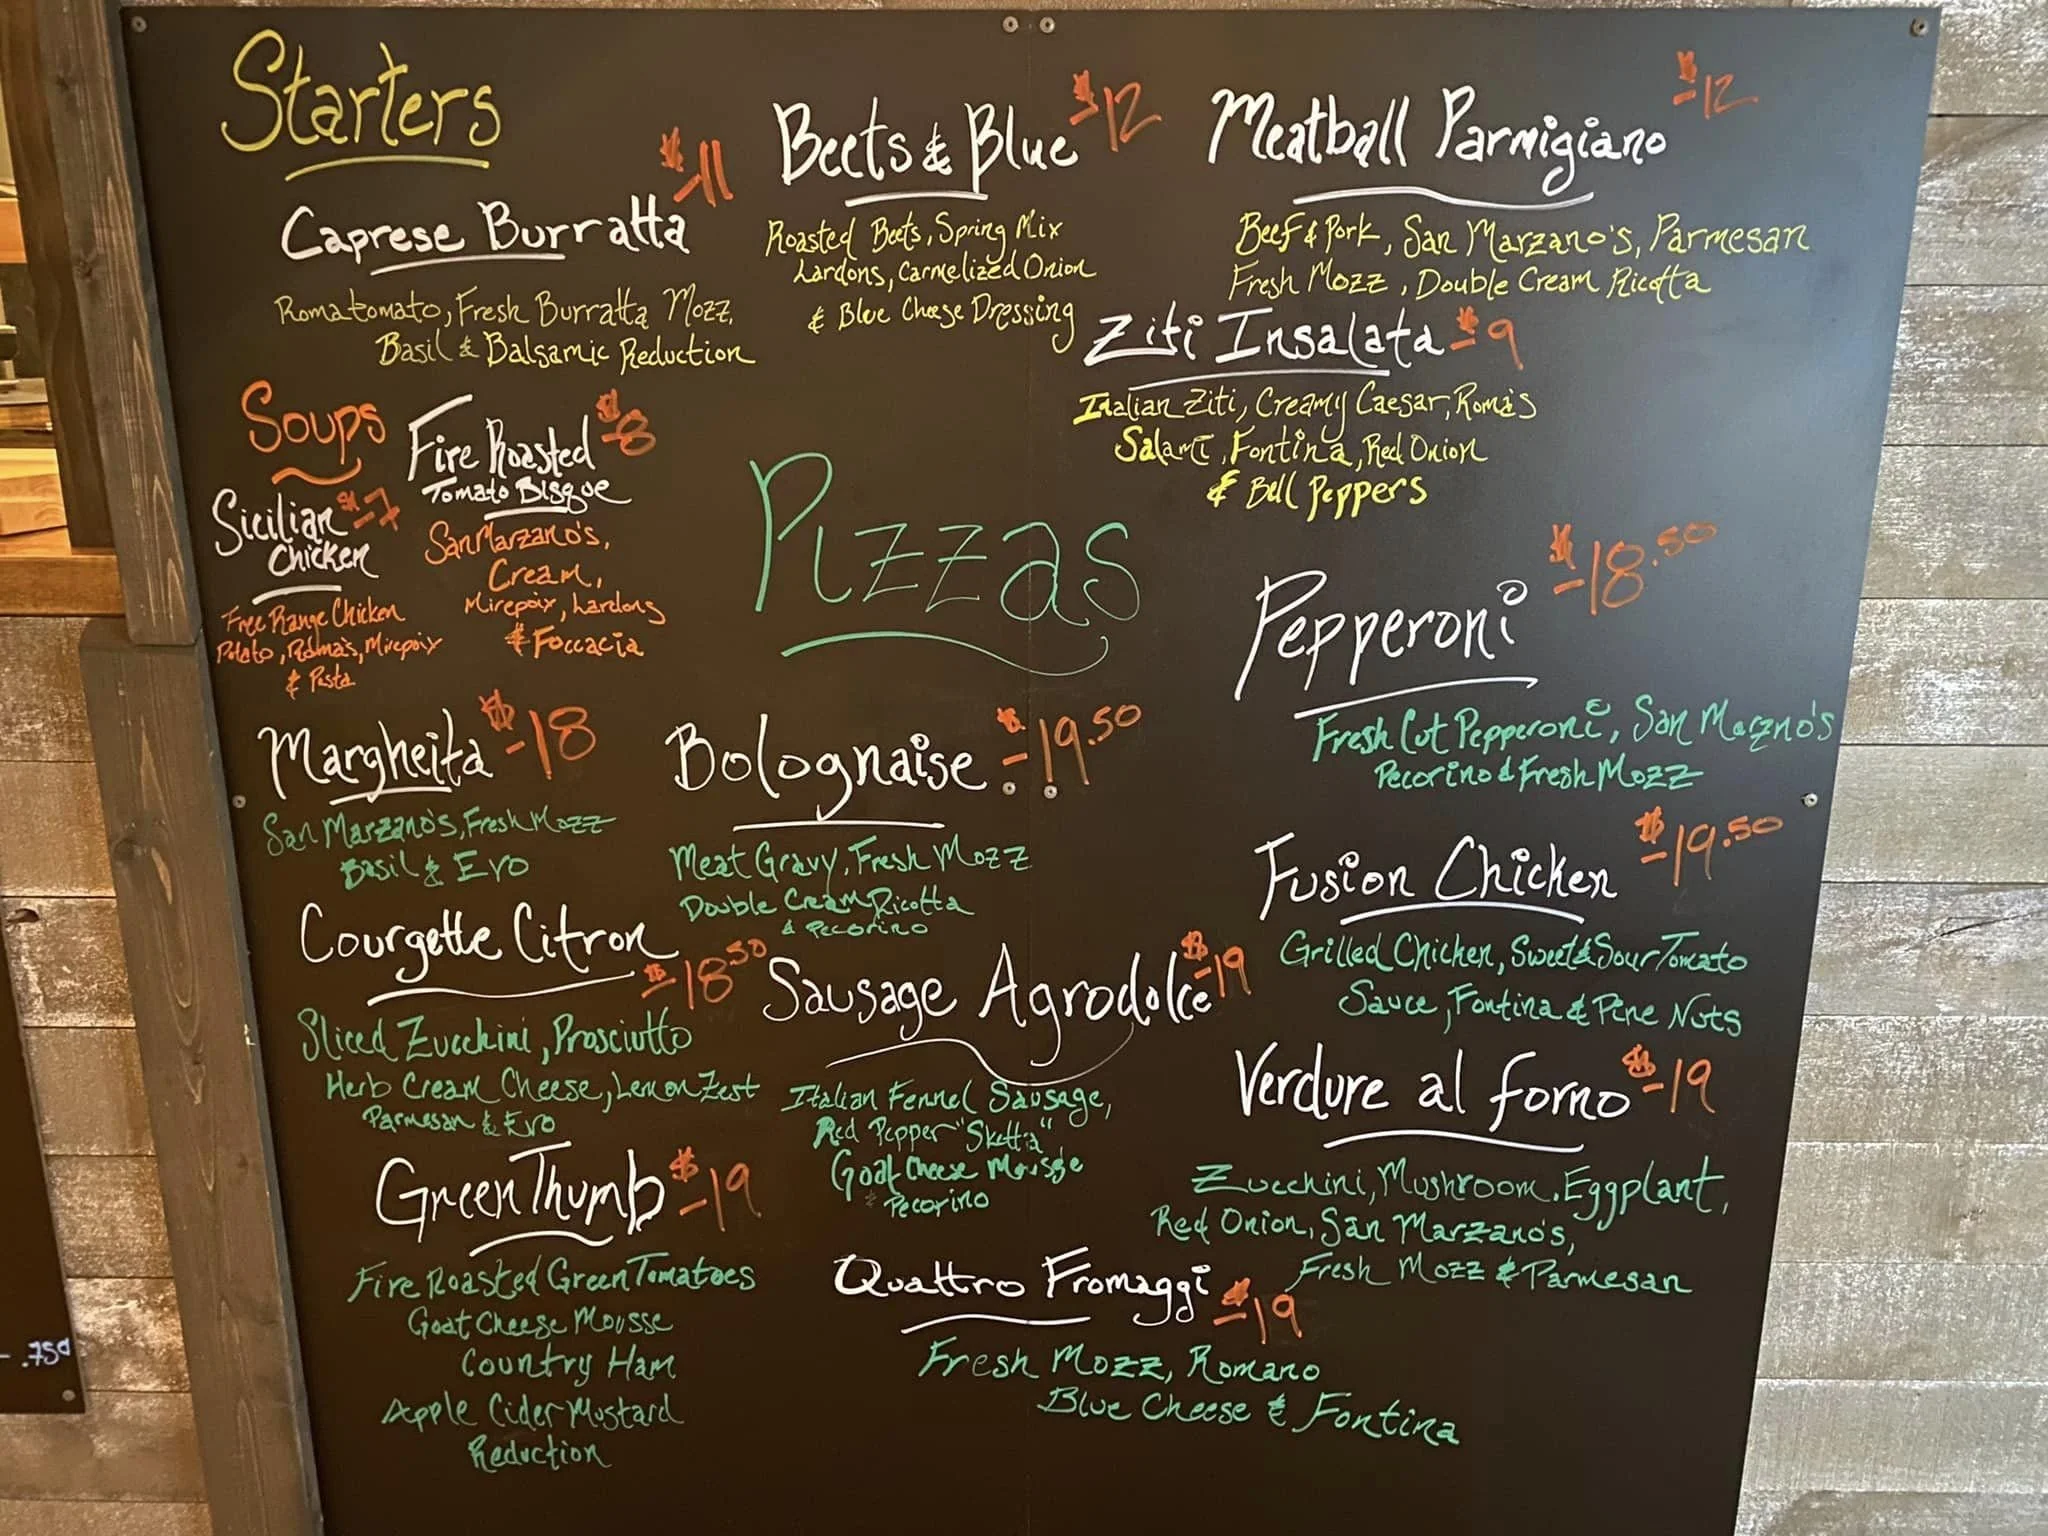 Starters
Caprese Burratta
$-11
Roma tomato, Fresh Burratta Mozz,
Basil & Balsamic Reduction
Beets & Blue
$-12
Roasted Beets, Spring Mix
Lardons, Carmelized Onion
& Blue Cheese Dressing
Meatball Parmigiano
$-12
Beef & Pork, San Marzano's, Parmesan
Fresh Mozz, Double Cream Ricotta
Ziti Insalata $-9
Italian Ziti, Creamy Caesar, Roma's
Salami, Fontina, Red Onion
& Bell Peppers
Soups
Sicilian $-7
Chicken
Free Range Chicken
Potato, Roma's, Mirepoix
& Pasta
Fire Roasted $-8
Tomato Bisque
San Marzano's,
Cream,
Mirepoix, Lardons
& Foccacia
Pizzas
Margheita $-18
San Marzano's, Fresh Mozz
Basil & Evo
Bolognaise $-19.50
Meat Gravy, Fresh Mozz
Double Cream Ricotta
& Pecorino
Pepperoni $-18.50
Fresh Cut Pepperoni, San Marzno's
Pecorino & Fresh Mozz
Courgette Citron
$-18.50
Sliced Zucchini, Prosciutto
Herb Cream Cheese, Lemon Zest
Parmesan & Evo
Sausage Agrodolce $-19
Italian Fennel Sausage,
Red Pepper "Sketta"
Goat Cheese Mousse
& Pecorino
Fusion Chicken $-19.50
Grilled Chicken, Sweet & Sour Tomato
Sauce, Fontina & Pine Nuts
Verdure al forno $-19
Zucchini, Mushroom, Eggplant,
Red Onion, San Marzano's,
Fresh Mozz & Parmesan
Green Thumb $-19
Fire Roasted Green Tomatoes
Goat Cheese Mousse
Country Ham
Apple Cider Mustard
Reduction
Quattro Fromaggi
$-19
Fresh Mozz, Romano
Blue Cheese & Fontina